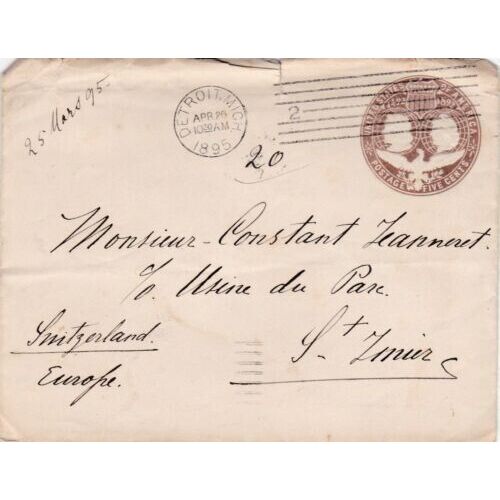 25 Mars 95.
DETROIT, MICH.
APR 26
10 30 AM
1895
2
UNITED STATES OF AMERICA
1492 1892
POSTAGE FIVE CENTS
20
Monsieur Constant Jeanneret.
c/o. Usine du Parc.
St Imier
Switzerland.
Europe.